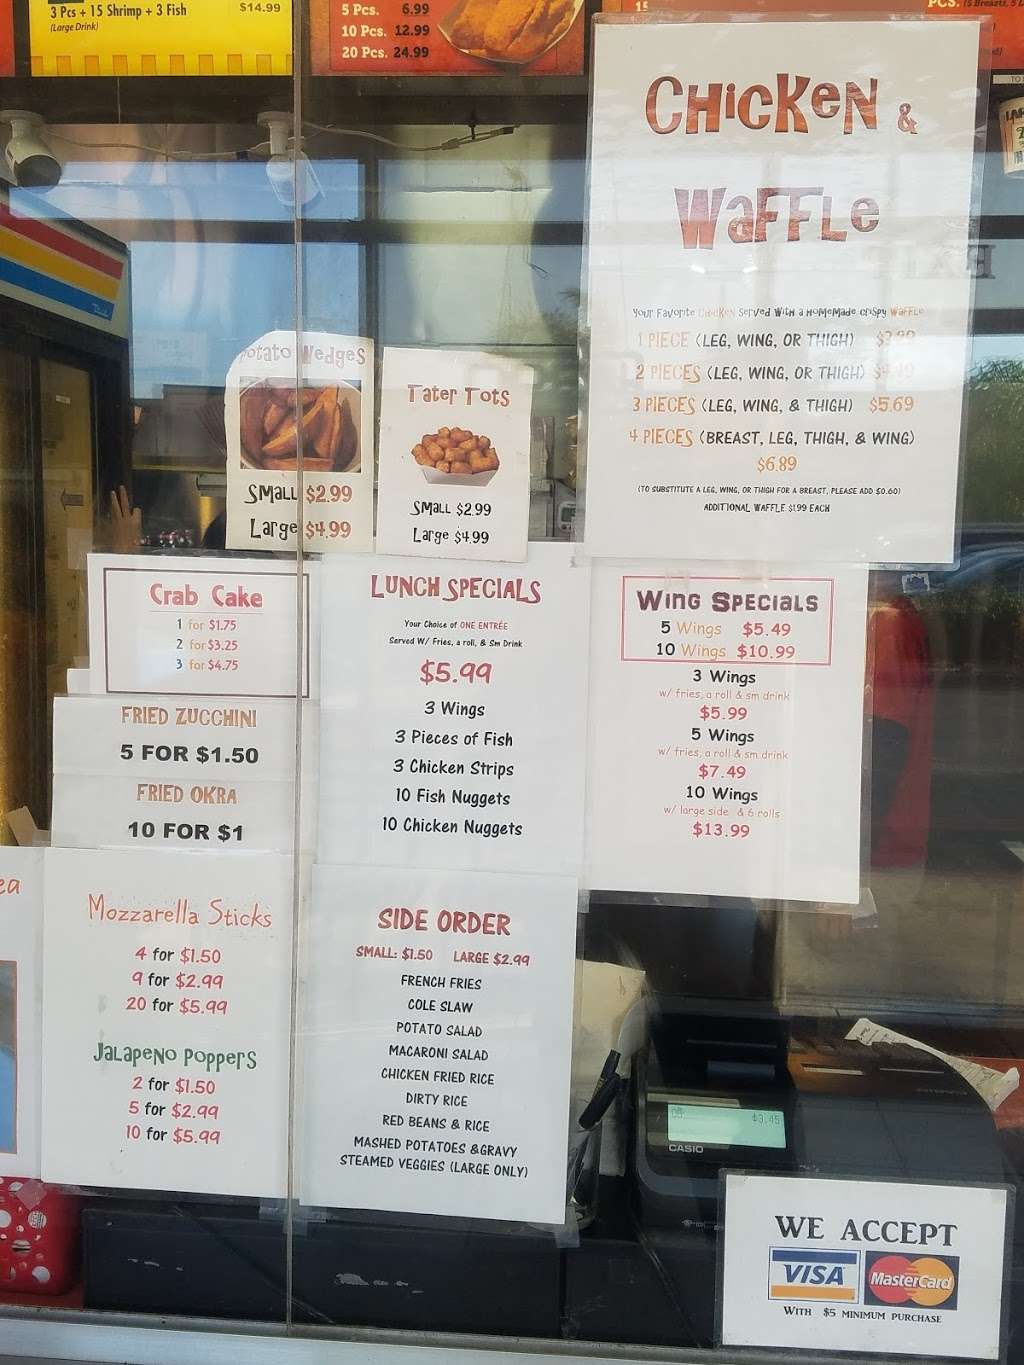 3 Pcs + 15 Shrimp + 3 Fish $14.99
(Large Drink)
5 Pcs. 6.99
10 Pcs. 12.99
20 Pcs. 24.99
CHicKeN &
WaFFLe
Your Favorite CHicKeN Served WitH a HoMeMade criSpy WaFFLe
1 PIECE (LEG, WING, OR THIGH) $3.99
2 PIECES (LEG, WING, OR THIGH) $4.49
3 PIECES (LEG, WING, & THIGH) $5.69
4 PIECES (BREAST, LEG, THIGH, & WING)
$6.89
(TO SUBSTITUTE A LEG, WING, OR THIGH FOR A BREAST, PLEASE ADD $0.60)
ADDITIONAL WAFFLE $1.99 EACH
Potato Wedges
SMaLL $2.99
Large $4.99
Tater Tots
SMaLL $2.99
Large $4.99
Crab Cake
1 for $1.75
2 for $3.25
3 for $4.75
FRIED ZUCCHINI
5 FOR $1.50
FRIED OKRA
10 FOR $1
Mozzarella Sticks
4 for $1.50
9 for $2.99
20 for $5.99
JaLapeNo poppers
2 for $1.50
5 for $2.99
10 for $5.99
LUNCH SPECIALS
Your Choice of ONE ENTRÉE
Served W/ Fries, a roll, & Sm Drink
$5.99
3 Wings
3 Pieces of Fish
3 Chicken Strips
10 Fish Nuggets
10 Chicken Nuggets
SIDE ORDER
SMALL: $1.50 LARGE $2.99
FRENCH FRIES
COLE SLAW
POTATO SALAD
MACARONI SALAD
CHICKEN FRIED RICE
DIRTY RICE
RED BEANS & RICE
MASHED POTATOES &GRAVY
STEAMED VEGGIES (LARGE ONLY)
WING SPECIALS
5 Wings $5.49
10 Wings $10.99
3 Wings
w/ fries, a roll & sm drink
$5.99
5 Wings
w/ fries, a roll & sm drink
$7.49
10 Wings
w/ large side & 6 rolls
$13.99
$3.45
CASIO
WE ACCEPT
VISA MasterCard
WITH $5 MINIMUM PURCHASE